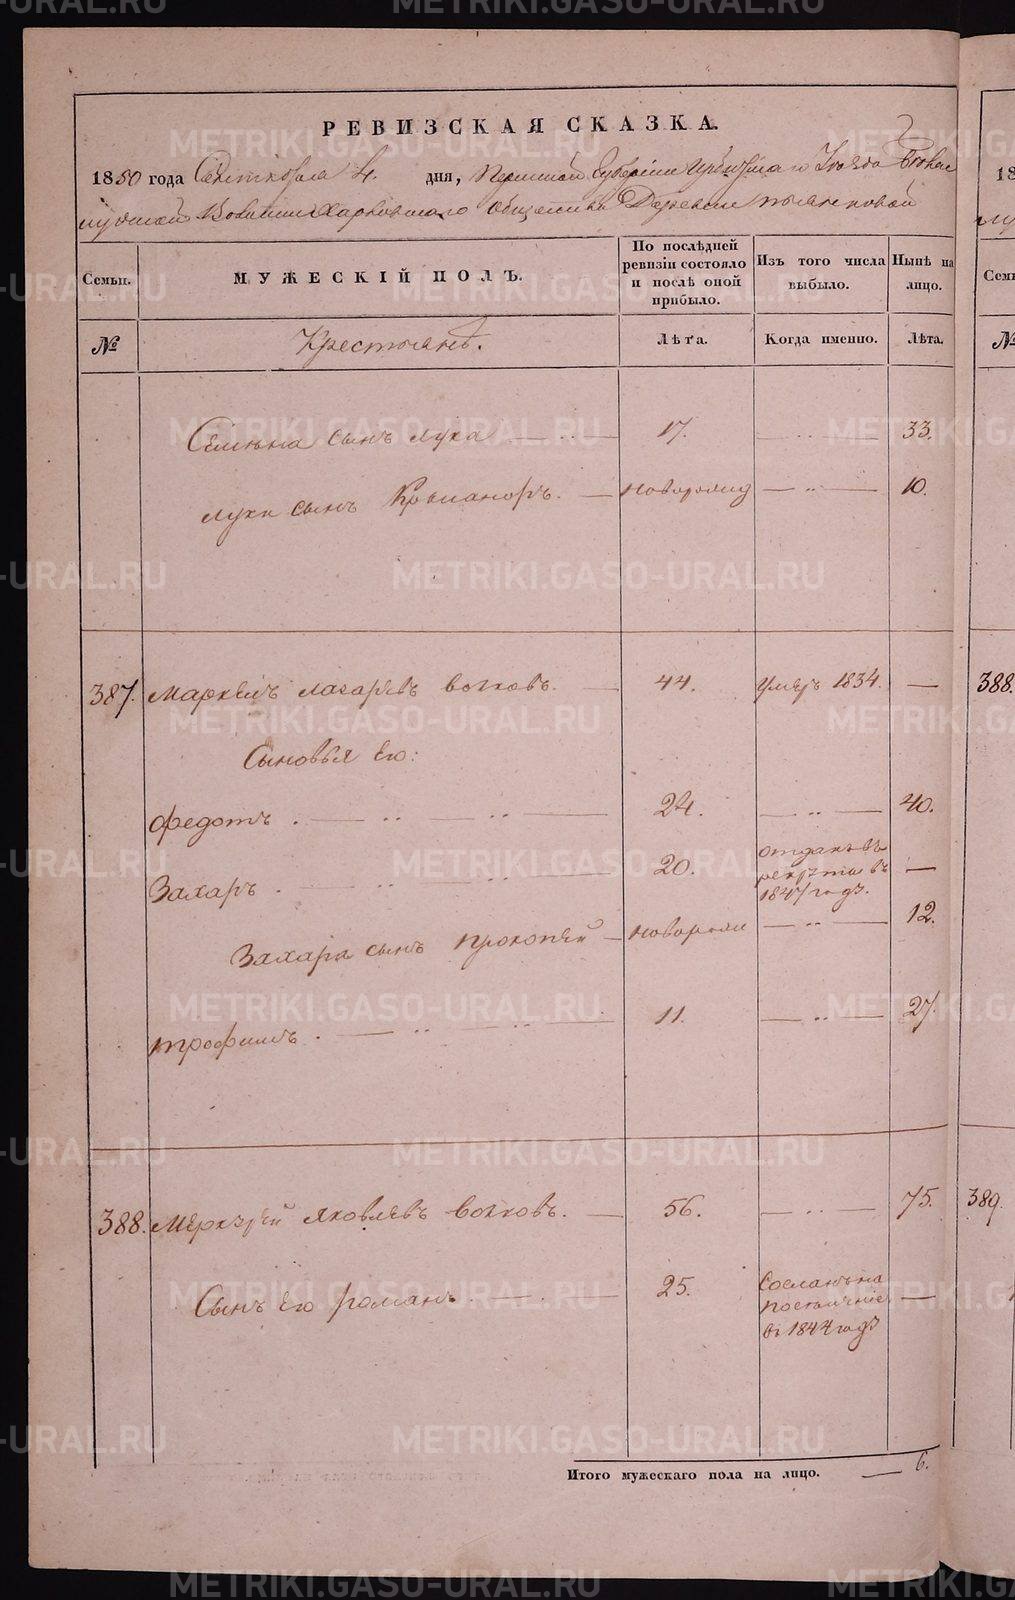 РЕВИЗСКАЯ СКАЗКА.
1850 года Сентября 4. дня, Пермской Губернии Ирбитскаго Уезда
Волости Харловскаго Общества Деревни
Семьи. МУЖЕСКІЙ ПОЛЪ. По послѣдней ревизіи состояло и послѣ оной прибыло. Изъ того числа выбыло. Нынѣ на лицо.
№ Крестьянъ. Лѣта. Когда именно. Лѣта.
Семена сынъ лука 17. 33.
луки сынъ новорожд 10.
387. Маркелъ лазаревъ волковъ. 44. умеръ 1834.
Сыновья Его:
Федотъ 24. 40.
Захаръ 20. отданъ въ рекруты въ 1847 годѣ.
Захара сынъ прокопей новорож 12.
трофимъ 11. 27.
388. Меркурей Яковлевъ волковъ. 56. 75.
Сынъ Его романъ 25. Сосланъ на поселеніе въ 1844 годѣ
Итого мужескаго пола на лицо. 6.
18
Семьи
№
388.
389.
METRIKI.GASO-URAL.RU